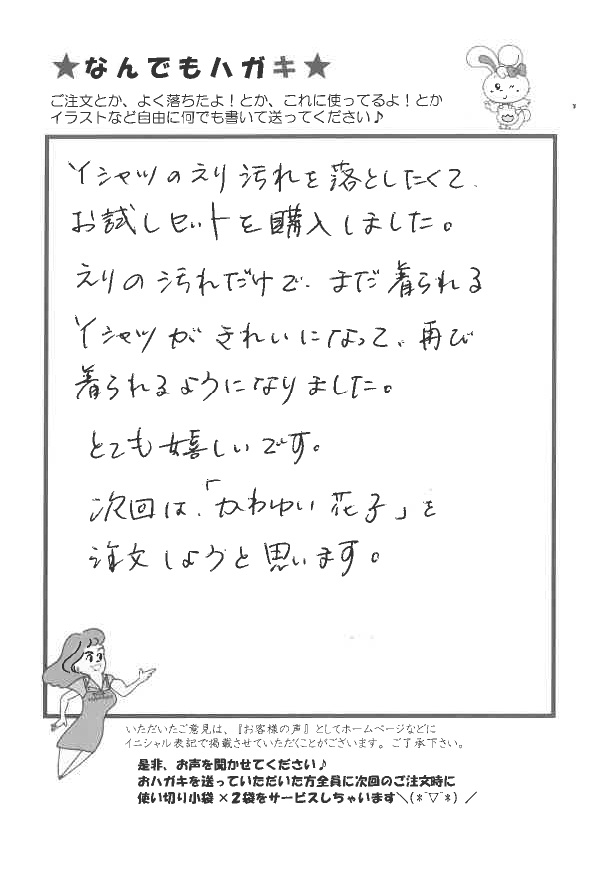 ★なんでもハガキ★
ご注文とか、よく落ちたよ！とか、これに使ってるよ！とか
イラストなど自由に何でも書いて送ってください♪
Yシャツのえり汚れを落としたくて、
お試しセットを購入しました。
えりの汚れだけで、まだ着られる
Yシャツがきれいになって、再び
着られるようになりました。
とても嬉しいです。
次回は、「かわゆい花子」を
注文しようと思います。
いただいたご意見は、『お客様の声』としてホームページなどに
イニシャル表記で掲載させていただくことがございます。ご了承下さい。
是非、お声を聞かせてください♪
おハガキを送っていただいた方全員に次回のご注文時に
使い切り小袋×2袋をサービスしちゃいます＼(*´▽`*)／